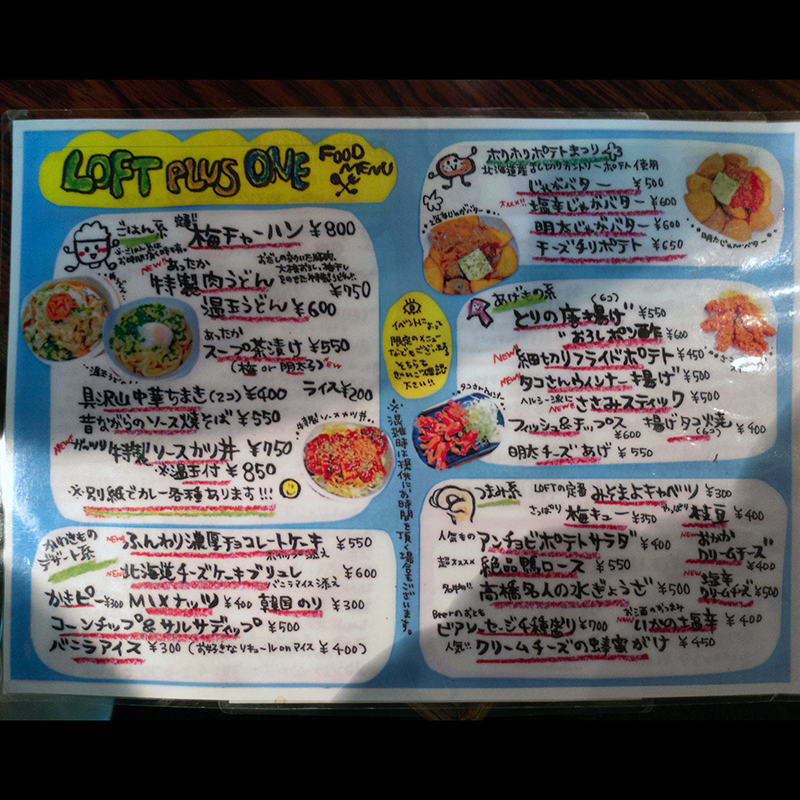 LOFT PLUS ONE FOOD MENU
ごはん系
梅チャーハン ¥800
NEW!! あったか
特製肉うどん ¥750
温玉うどん ¥600
あったか
スープ茶漬け ¥550
(梅 or 明太子) NEW
具沢山中華ちまき(2コ) ¥400 ライス ¥200
昔ながらのソース焼そば ¥550
NEW ガッツリ 特製ソースカツ丼 ¥750
※温玉付 ¥850
※別紙でカレー各種あります!!!
温玉うどん
特製ソースカツ丼
デザート系
NEW ふんわり濃厚チョコレートケーキ ¥550
NEW 北海道チーズケーキブリュレ ¥600
バニラアイス添え
かきピー ¥300 MIXナッツ ¥400 韓国のり ¥300
コーンチップ&サルサディップ ¥500
バニラアイス ¥300 (お好きなリキュール on アイス ¥400)
イベントによって
限定のメニュー
などもございます
そちらも
ご確認
下さい!!
※混雑時は提供にお時間を頂く場合もございます。
ホリホリポテトまつり
じゃがバター ¥500
塩辛じゃがバター ¥600
明太じゃがバター ¥600
チーズチリポテト ¥650
塩辛じゃがバター
明太じゃがバター
あげもの系
とりの唐揚げ (6コ) ¥550
〃 おろしポン酢 ¥600
NEW 細切りフライドポテト ¥450
NEW タコさんウィンナー揚げ ¥500
ヘルシー派に NEW ささみスティック ¥500
フィッシュ&チップス ¥600 揚げタコ焼 (6コ) ¥400
明太チーズあげ ¥550
つまみ系 LOFTの定番 みそまよキャベツ ¥300
さっぱり 梅キュー ¥350 やっぱり 枝豆 ¥400
人気もの アンチョビポテトサラダ ¥400
NEW おかか クリームチーズ ¥400
超オススメ 絶品鴨ロース ¥550
名物!! 高橋名人の水ぎょうざ ¥500
NEW 塩辛 クリームチーズ ¥500
Beerのおとも
ビアソーセージ4種盛り ¥700 いかの塩辛 ¥400
人気!! クリームチーズの蜂蜜がけ ¥450